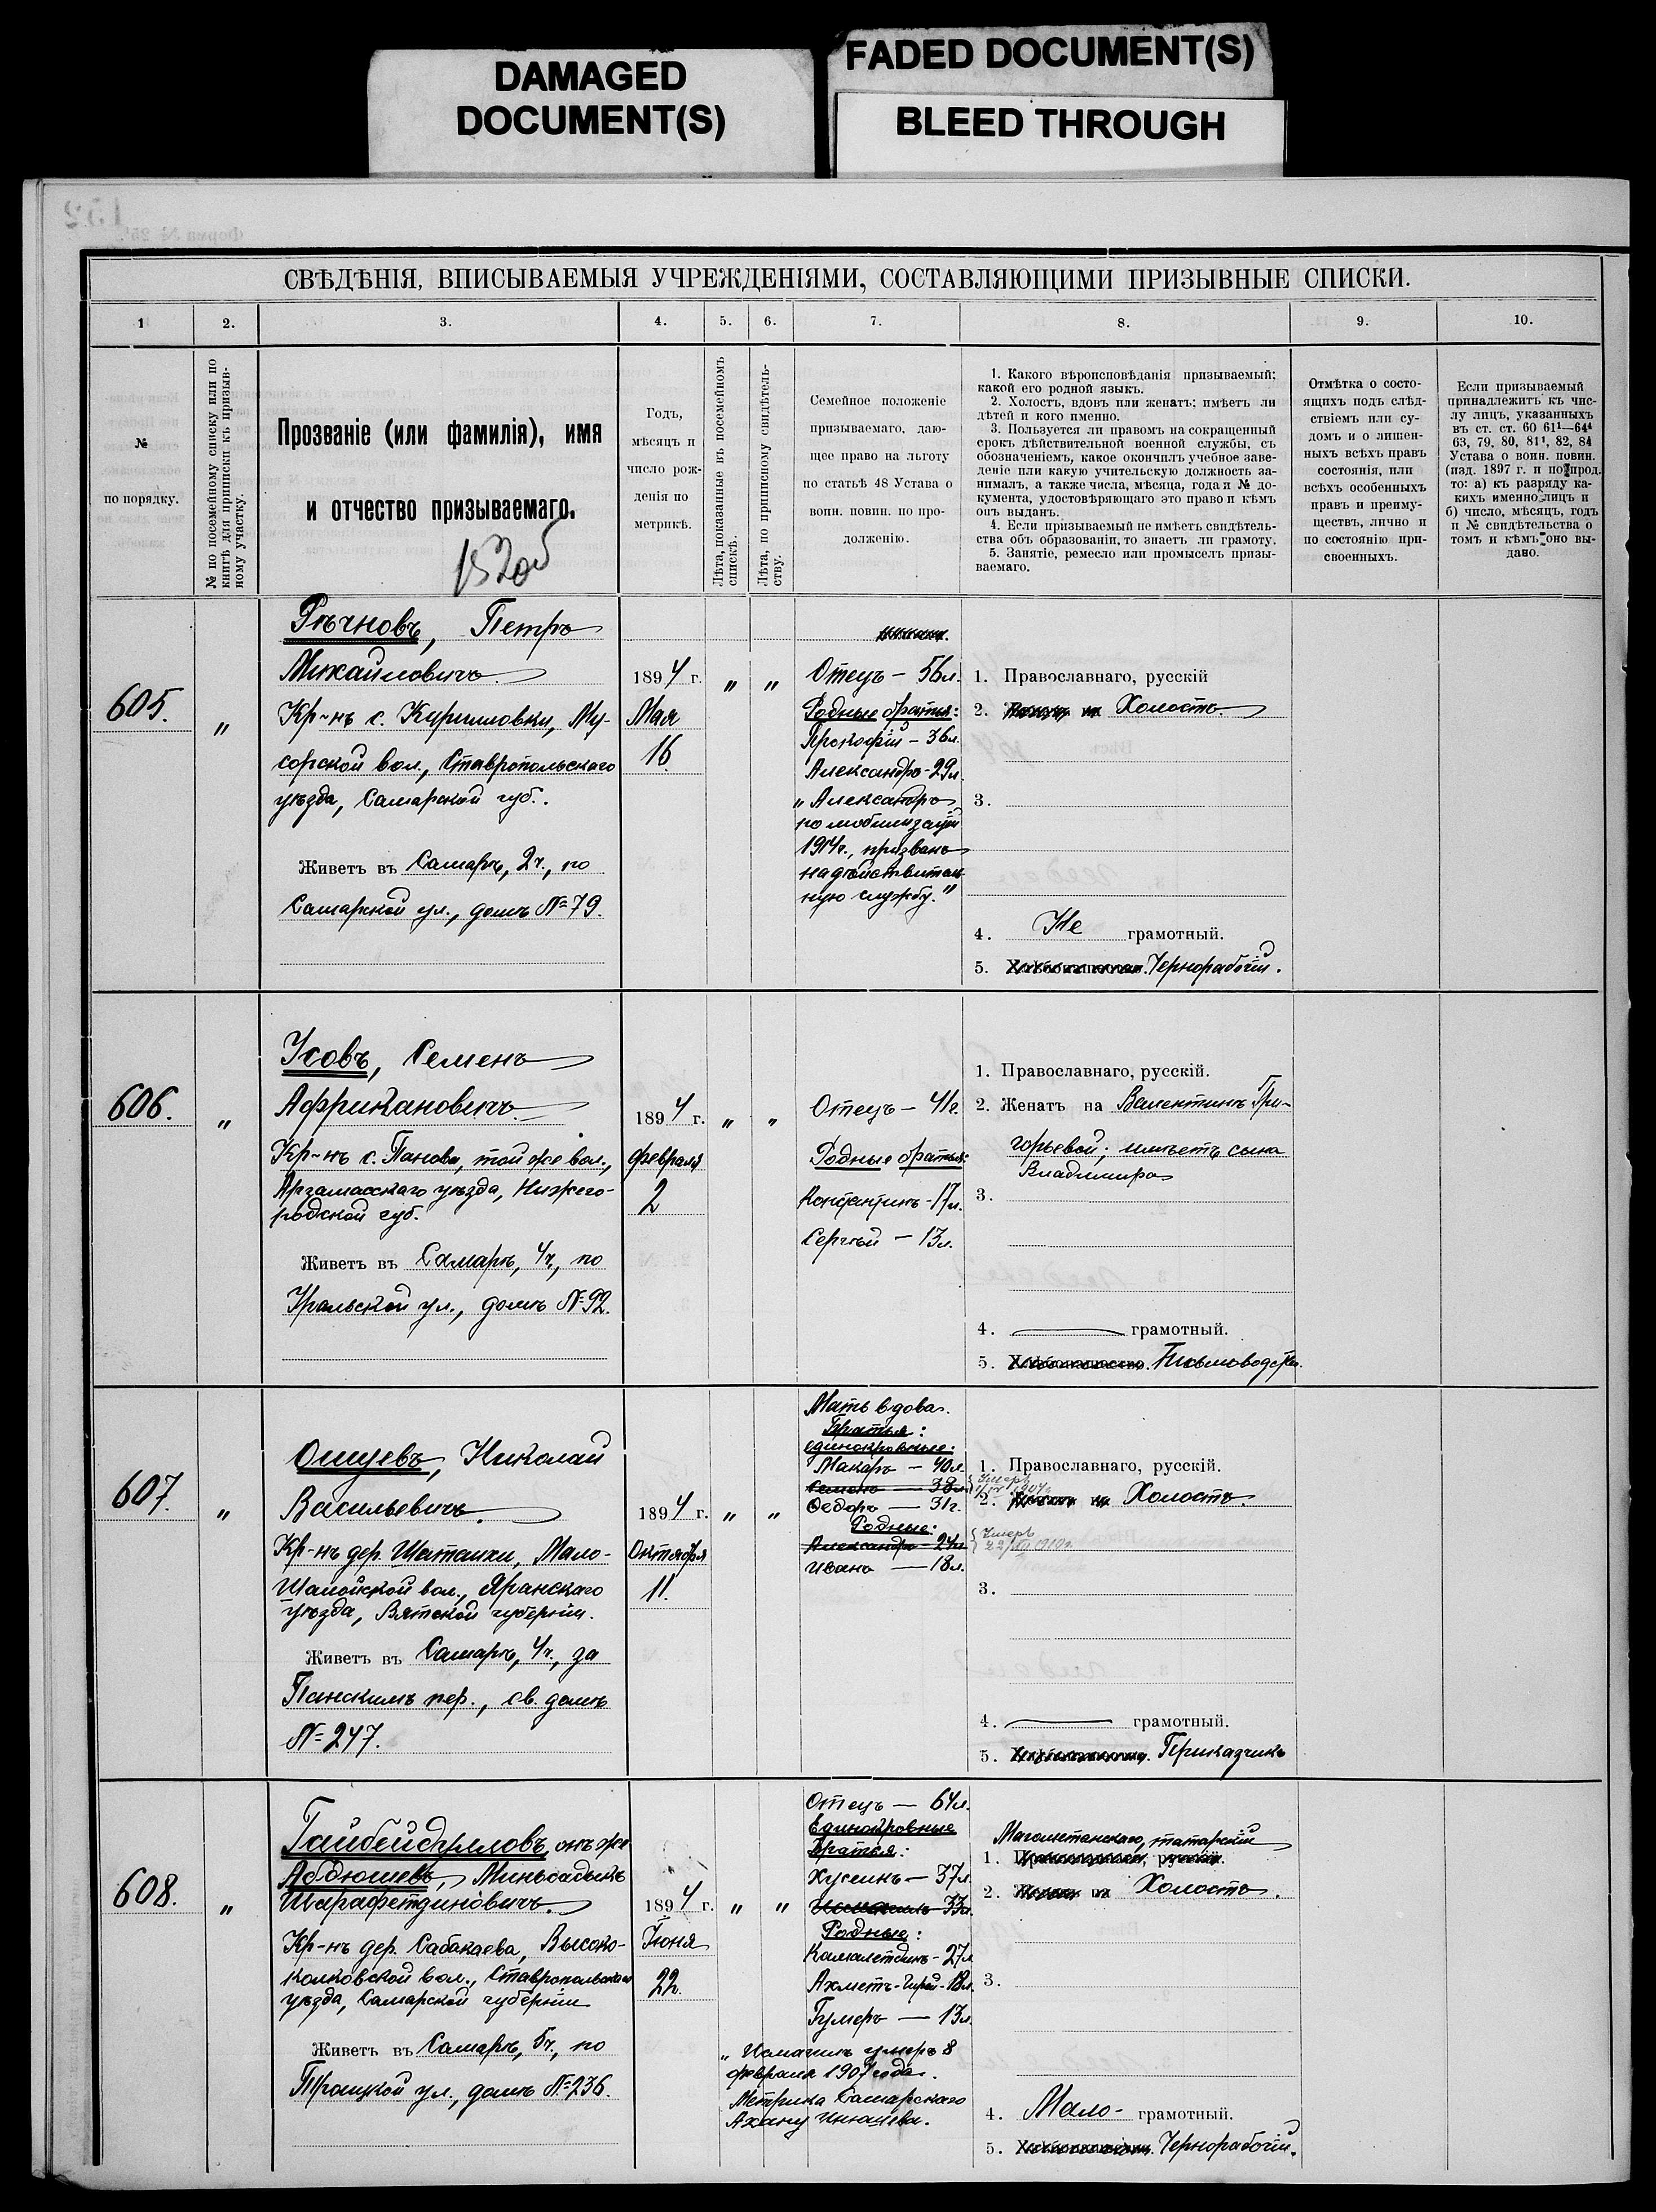 DAMAGED
DOCUMENT(S)
FADED DOCUMENT(S)
BLEED THROUGH
СВѢДѢНІЯ, ВПИСЫВАЕМЫЯ УЧРЕЖДЕНІЯМИ, СОСТАВЛЯЮЩИМИ ПРИЗЫВНЫЕ СПИСКИ.
1 2. 3. 4. 5. 6. 7. 8. 9. 10.
№
по порядку.
№ по посемейному списку или по
книгѣ для приписки къ призыв-
ному участку.
Прозваніе (или фамилія), имя
и отчество призываемаго.
Годъ,
мѣсяцъ и
число рож-
денія по
метрикѣ.
Лѣта, показанные въ посемейномъ
спискѣ.
Лѣта, по приписному свидѣтель-
ству.
Семейное положеніе
призываемаго, даю-
щее право на льготу
по статьѣ 48 Устава о
воин. повин. по про-
долженію.
1. Какого вѣроисповѣданія призываемый;
какой его родной языкъ.
2. Холостъ, вдовъ или женатъ; имѣетъ ли
дѣтей и кого именно.
3. Пользуется ли правомъ на сокращенный
срокъ дѣйствительной военной службы, съ
обозначеніемъ, какое окончилъ учебное заве-
деніе или какую учительскую должность за-
нималъ, а также числа, мѣсяца, года и № до-
кумента, удостовѣряющаго это право и кѣмъ
онъ выданъ.
4. Если призываемый не имѣетъ свидѣтель-
ства объ образованіи, то знаетъ ли грамоту.
5. Занятіе, ремесло или промыселъ призы-
ваемаго.
Отмѣтка о состо-
ящихъ подъ слѣд-
ствіемъ или су-
домъ и о лишен-
ныхъ всѣхъ правъ
состоянія, или
всѣхъ особенныхъ
правъ и преиму-
ществъ, лично и
по состоянію при-
своенныхъ.
Если призываемый
принадлежитъ къ чис-
лу лицъ, указанныхъ
въ ст. ст. 60 61¹—64⁴
63, 79, 80, 81¹, 82, 84
Устава о воин. повин.
(изд. 1897 г. и по прод.
то: а) къ разряду ка-
кихъ именно лицъ и
б) число, мѣсяцъ, годъ
и № свидѣтельства о
томъ и кѣмъ оно вы-
дано.
152об
605.
„
Рѣчновъ, Петръ
Михайловичъ
Кр-нъ с. Кирилловки, Му-
сорской вол., Ставропольскаго
уѣзда, Самарской губ.
Живетъ въ Самарѣ, 2ч., по
Самарской ул., домъ №79.
1894 г.
Мая
16
„ „
Отецъ — 56л.
Родные братья:
Прокофій — 36л.
Александръ - 29л.
„Александръ
по мобилизаціи
1914г., призванъ
на дѣйствитель-
ную службу."
1. Православнаго, русскій
2. Холостъ.
3.
4. Не грамотный.
5. Чернорабочій.
606.
„
Усовъ, Семенъ
Африкановичъ
Кр-нъ с. Панова, той же вол.,
Арзамасскаго уѣзда, Нижего-
родской губ.
Живетъ въ Самарѣ, 4ч., по
Уральской ул., домъ №92.
1894 г.
Февраля
2
„ „
Отецъ — 41г.
Родные братья:
Константинъ - 17л.
Сергѣй — 13л.
1. Православнаго, русскій.
2. Женатъ на Валентинѣ Гри-
горьевой; имѣетъ сына
Владимира
3.
4. грамотный.
5. Хлѣбопашество. Письмоводств.
607.
„
Ощуевъ, Николай
Васильевичъ.
Кр-нъ дер. Шаташки, Мало-
Шалайской вол., Яранскаго
уѣзда, Вятской губерніи.
Живетъ въ Самарѣ, 4ч., за
Панскимъ пер., св. домъ
№247.
1894 г.
Октября
11.
„ „
Мать вдова.
Братья:
единокровные:
Макаръ — 40л.
Семенъ — 38л.
Федоръ — 31г.
Родные:
Александръ - 24г.
Иванъ — 18л.
Умеръ
Умеръ
1. Православнаго, русскій.
2. Холостъ.
3.
4. грамотный.
5. Приказчикъ
608.
„
Гайбейдулловъ, онъ же
Абдюшевъ, Миньсадыкъ
Шарафетдиновичъ.
Кр-нъ дер. Сабакаева, Высоко-
колковской вол., Ставропольскаго
уѣзда, Самарской губерніи
Живетъ въ Самарѣ, 5ч., по
Троицкой ул., домъ №236.
1894 г.
Іюня
22.
„ „
Отецъ — 64л.
Единокровные
братья:
Хусеинъ — 37л.
Исмагилъ 33л.
Родные:
Камалетдинъ - 27л.
Ахметъ-Гирей - 18л.
Гумеръ — 13л.
„Исмагилъ умеръ 8
февраля 1907 года.
Метрика Самарскаго
Ахуну Инюшева.
Магометанскаго, татарскій
1.
2. Холостъ.
3.
4. Мало- грамотный.
5. Чернорабочій.